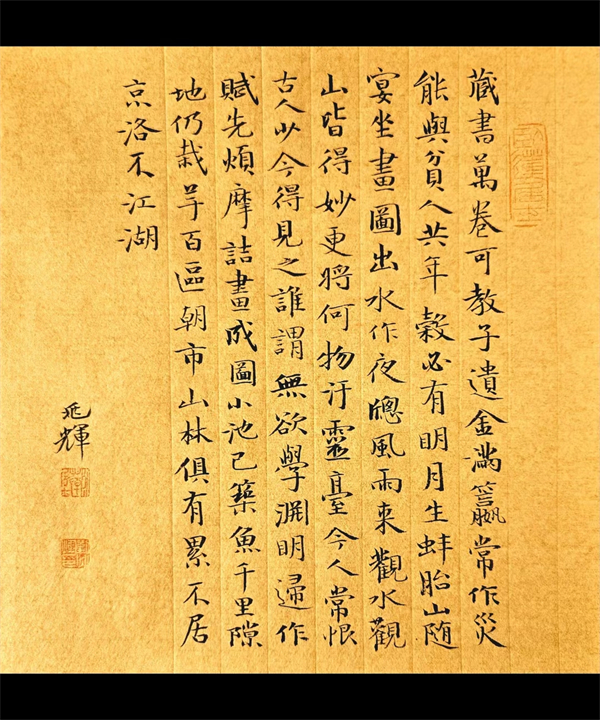 藏書萬卷可教子遺金滿籝常作災
能與貧人共年穀必有明月生蚌胎山随
宴坐畫圖出水作夜牕風雨来觀水觀
山皆得妙更將何物汙靈臺今人常恨
古人少今得見之誰謂無欲學淵明歸作
賦先煩摩詰畫成圖小池已築魚千里隙
地仍栽芋百區朝市山林俱有累不居
京洛不江湖
兆輝